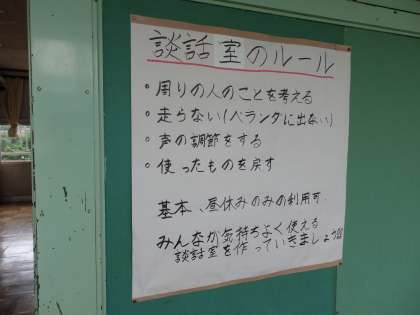 談話室のルール
・周りの人のことを考える
・走らない(ベランダに出ない)
・声の調節をする
・使ったものを戻す
基本、昼休みのみの利用可.
みんなが気持ちよく使える
談話室を作っていきましょう